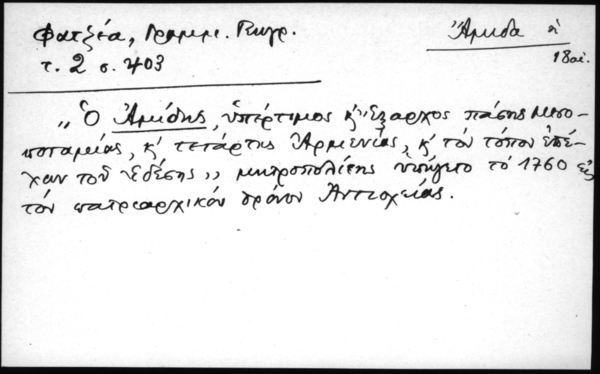 Φατζέα, Γραμμ. Γεωγρ.
τ. 2 σ. 403
Ἄμιδα ἡ
18 αἰ.
„ Ὁ Ἀμίδης, ὑπέρτιμος κ' Ἔξαρχος πάσης Μεσο-
ποταμίας, κ' τετάρτης Ἀρμενίας, κ' τὸν τόπον ἐπέ-
χων τοῦ Ἐδέσης „ μητροπολίτης ὑπήγετο τὸ 1760 εἰς
τὸν πατριαρχικὸν θρόνον Ἀντιοχείας.